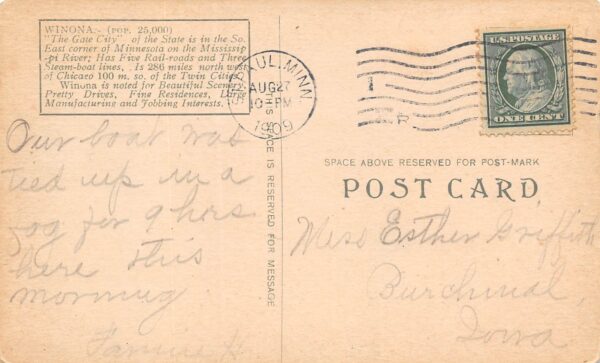 WINONA.- (POP. 25,000)
"The Gate City" of the State is in the So.
East corner of Minnesota on the Mississip
-pi River; Has Five Rail-roads and Three
Steam-boat lines, . Is 286 miles north west
of Chicaeo 100 m. so. of the Twin Cities
Winona is noted for Beautiful Scenery,
Pretty Drives, Fine Residences, Large
Manufacturing and Jobbing Interests.
Our boat was
tied up in a
fog for 9 hrs.
here this
morning
Fannie H.
THIS SPACE IS RESERVED FOR MESSAGE
ST. PAUL, MINN.
AUG 27
10-PM
1909
1
U.S. POSTAGE
ONE CENT
SPACE ABOVE RESERVED FOR POST-MARK
POST CARD
Miss Esther Griffith
Burchinal,
Iowa